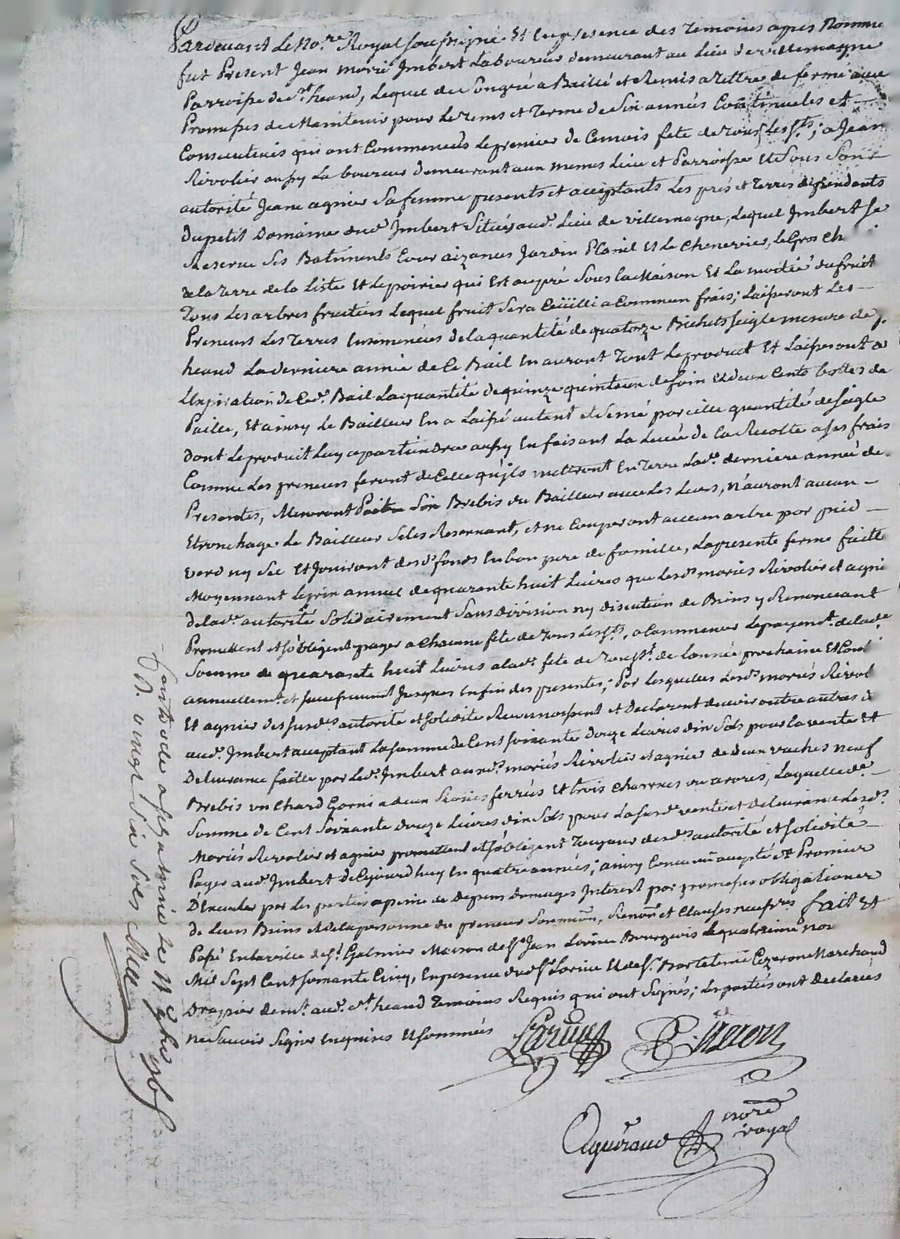 Pardevant Le No.re Royal Soussigné Et En presence des Temoins apres Nommés
fut Present Jean Imbert Laboureur demeurant au Lieu de villemagne
Parroisse de St. heand, Lequel de Son gré a Baillé et Remis a Tittre de ferme avec
Promesses de Maintenir pour Le Tems et Terme de Six années Continuelles et
Consecutives qui ont Commencés Le premier de Ce mois fete de Tous Les Sts; a Jean
Rivolier aussy Laboureur demeurant aux memes Lieu et Parroisse Et Sous Son
autorité Jeane agnier Sa femme presents et acceptants Les prés et Terres dependants
Du petit Domaine dud. Imbert Situé aud. Lieu de villemagne, Lequel Imbert Se
Reserve Ses Batiments Cour aizances Jardin Et Le Chenevier, Le Gros
de la Terre de la Liste Et Le poirier qui Est au pré Sous La Maison Et La moitié du fruit
Tous Les arbres fruitiers Lequel fruit Sera Ceüilli a Commun frais; Laisseront Les
Preneurs Les Terres Ensemencées de la quantité de quatorze Bichets seigle mesure de St.
heand La derniere année de Ce Bail En auront Tout Le produit Et Laisseront a
L'expiration de Ced. Bail La quantité de quinze quinteaux de foin et deux Cents bottes de
Paille, Et ainsy Le Bailleur En a Laissé autant et Semé pareille quantité de Seigle
Dont Le produit Luy apartiendra aussy En faisant La Levée de la Recolte a Ses frais
Comme Les preneurs feront de Celle qu'ils mettront En Terre Lad. derniere année des
Presentes, Meneront Paitre Six Brebis du Bailleur avec Les Leurs, N'auront aucun
Etronchage Le Bailleur Se Les Reservant, et ne Couperont aucun arbre par pied
verd ny Sec Et Jouiront desd. fonds En bon pere de famille, La presente ferme faitte
Moyennant Le prix annuel de quarante huit Livres que Lesd. mariés Rivolier et agnier
de lad. autorité Solidairement Sans division ny discution de Biens y Renoncant
Promettent et s'obligent payer a Chacune fete de Tous Les Sts, a Commencer Le payemt. de lade.
Somme de quarante huit Livres a lad. fete de Toussts. de L'année prochaine Et Cont.
annuellemt. et Jusques En fin des presentes; Par Lesquelles Lesd. mariés Rivol
Et agnier desusd. autorité et Solidité Reconnoissent et Declarent devoir outre autres
aud. Imbert acceptant La Somme de Cent Soixante Douze Livres dix Sols pour La vente et
Delivrance faitte par Led. Imbert auxd. mariés Rivolier et agnier de deux vaches neuf
Brebis un Chard Garni a deux ferrés Et trois Charrues ou araires, Laquelle de.
Somme de Cent Soixante Douze Livres dix Sols pour La Susd. vente et delivrance Lesd.
Mariés Rivolier et agnier promettent et s'obligent Toujours desd. autorité et Solidité
Payer aud. Imbert de Cejourd'huy en quatre années; ainsy Convenu accepté et Promis
D'executer par Les parties a peine de depens domages Interest par promesses obligation
de Leurs Biens et de la personne du preneur Soumon, Renon et Clauses necesres. fait Et
Passé En la ville de St. Galmier Maison de Sr. Jean Larive Bourgeois Le quatrieme nov
Mil Sept Cent Soixante Cinq, En presence dud. Sr. Larive Et de Sr. Bartelemi Marchand
Drapier demt. aud. St. heand Temoins Requis qui ont Signés; Les parties ont declarés
ne Scavoir Signer Enquises et Sommées
Larive
Royal